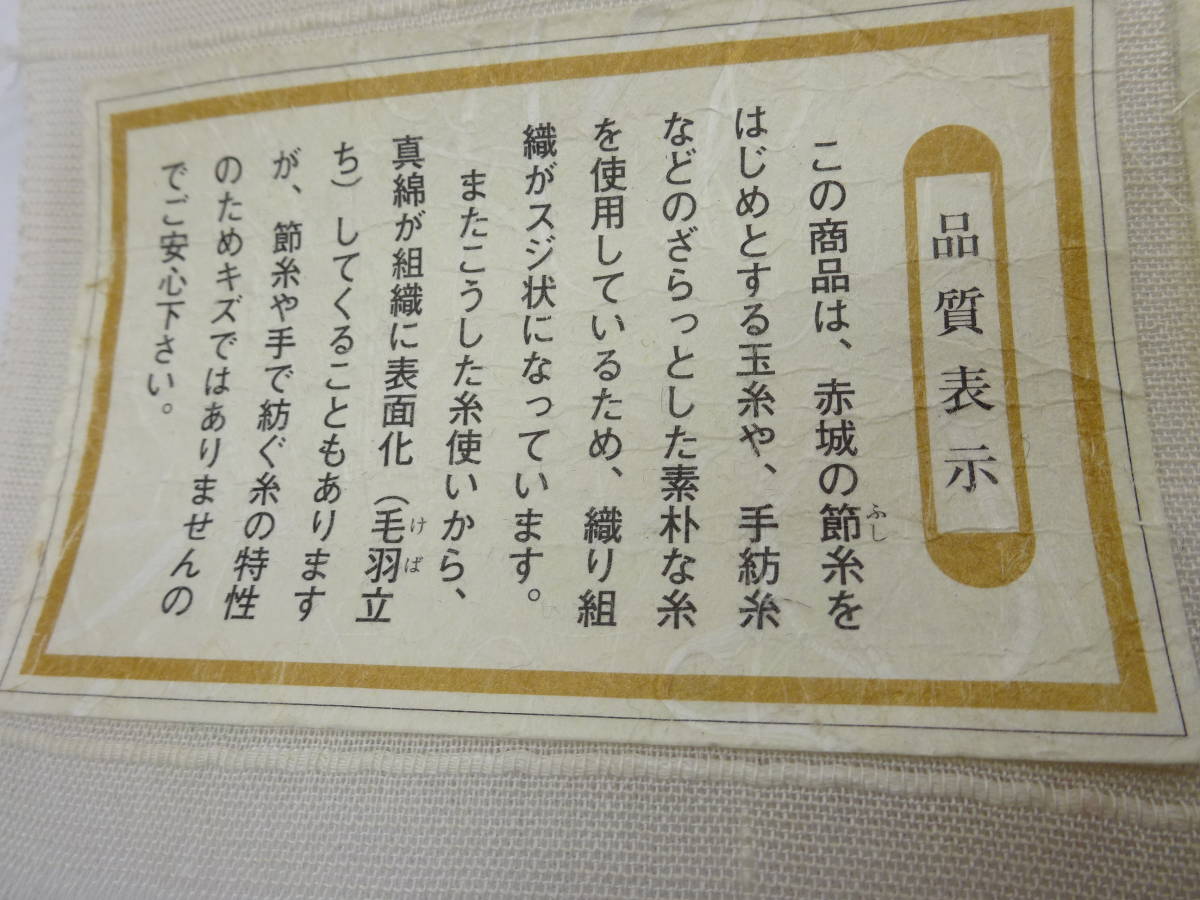 品質表示
この商品は、赤城の節糸を
ふし
はじめとする玉糸や、手紡糸
などのざらっとした素朴な糸
を使用しているため、織り組
織がスジ状になっています。
またこうした糸使いから、
真綿が組織に表面化（毛羽立
けば
ち）してくることもあります
が、節糸や手で紡ぐ糸の特性
のためキズではありませんの
でご安心下さい。